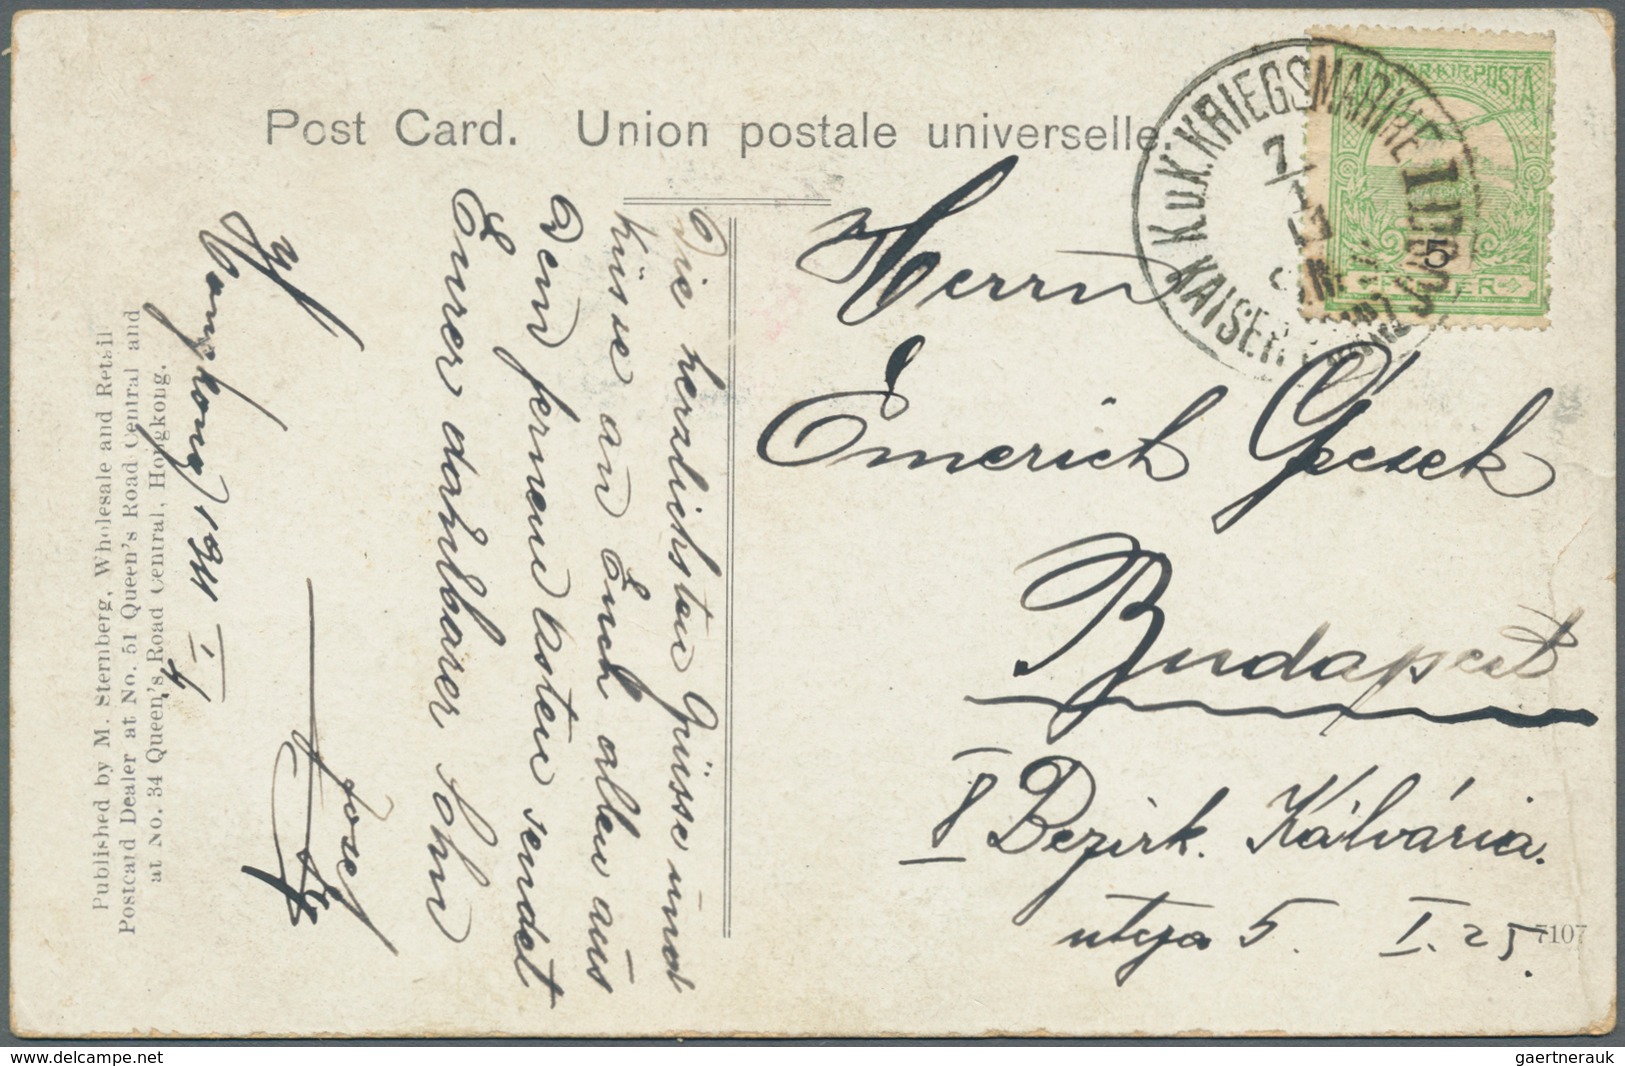 Post Card. Union postale universelle
K.u.K. KRIEGSMARINE
KAISER
MAGYAR·KIR·POSTA
5
Herrn
Emerich
Budapest
8 Bezirk. Kálvária.
utcja 5. I. 25.
7107
Hongkong 1911 4/I
Die herzlichsten Grüsse und
küsse an Euch allen aus
dem fernem Osten sendet
Eurer dankbarer Sohn
Josef
Published by M. Sternberg, Wholesale and Retail
Postcard Dealer at No. 51 Queen's Road Central and
at No. 34 Queen's Road Central, Hongkong.
gaertnerauk
www.delcampe.net